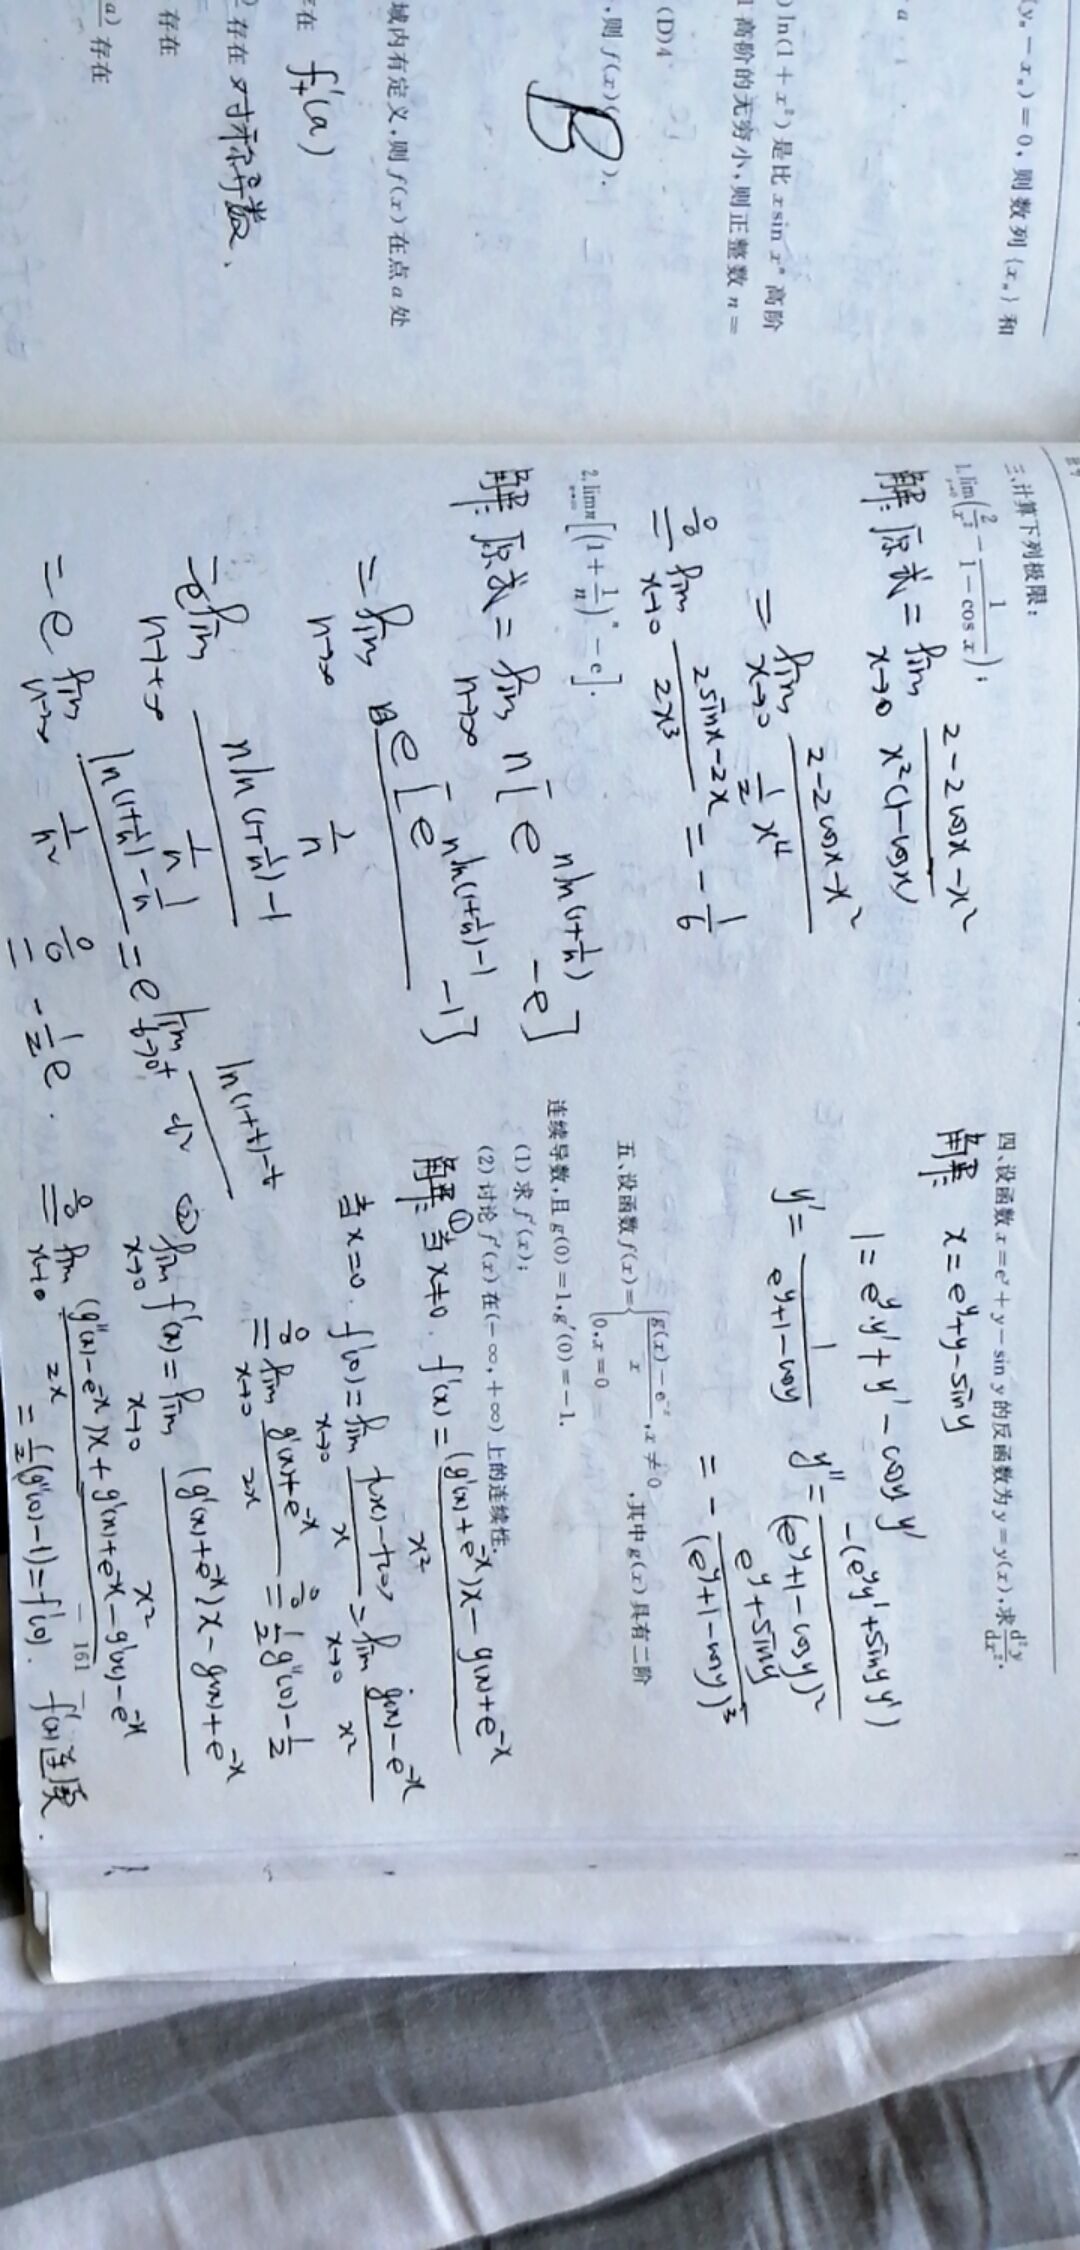 (yₙ − xₙ) = 0，则数列{xₙ}和
a
) ln(1 + x²) 是比 x sin xⁿ 高阶
高阶的无穷小，则正整数 n =
(D)4
，则 f(x)( ).
B
域内有定义，则 f(x) 在点 a 处
存在 f'₊(a)
存在 对称导数、
存在
a) 存在
三、计算下列极限：
1. lim(x→0) (2/x² − 1/(1−cos x))；
解：原式 = lim(x→0) (2−2cosx−x²)/(x²(1−cosx))
= lim(x→0) (2−2cosx−x²)/(½x⁴)
0/0= lim(x→0) (2sinx−2x)/(2x³) = −1/6
2. lim(n→∞) n[(1+1/n)ⁿ − e].
解：原式 = lim(n→∞) n[e^(n ln(1+1/n)) − e]
= lim(n→∞) e[e^(n ln(1+1/n)−1) −1]/(1/n)
= e lim(n→+∞) (n ln(1+1/n)−1)/(1/n)
= e lim(n→∞) (ln(1+1/n)−1/n)/(1/n²) = e lim(t→0⁺) (ln(1+t)−t)/t²
0/0= −½e.
四、设函数 x = e^y + y − sin y 的反函数为 y = y(x)，求 d²y/dx².
解：x = e^y+y−siny
1 = e^y·y' + y' − cosy y'
y' = 1/(e^y+1−cosy) y'' = −(e^y y'+siny y')/(e^y+1−cosy)²
= −(e^y+siny)/(e^y+1−cosy)³
五、设函数 f(x) = {(g(x) − e^(−x))/x, x ≠ 0; 0, x = 0，其中 g(x) 具有二阶
连续导数，且 g(0) = 1, g'(0) = −1.
(1) 求 f'(x)；
(2) 讨论 f'(x) 在(−∞, +∞) 上的连续性.
解：① 当 x≠0. f'(x) = ((g'(x)+e^(−x))x − g(x)+e^(−x))/x²
当 x=0. f'(0) = lim(x→0) (f(x)−f(0))/x = lim(x→0) (g(x)−e^(−x))/x²
0/0= lim(x→0) (g'(x)+e^(−x))/(2x) 0/0= ½g''(0)−½
② lim(x→0) f'(x) = lim(x→0) ((g'(x)+e^(−x))x − g(x)+e^(−x))/x²
0/0= lim(x→0) ((g''(x)−e^(−x))x + g'(x)+e^(−x) − g'(x)−e^(−x))/(2x)
= ½(g''(0)−1) = f'(0). f'(x)连续.
— 161 —